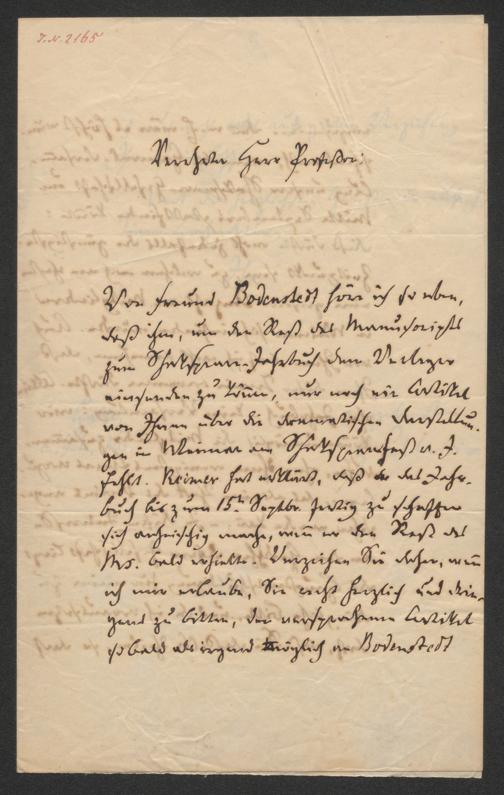 J.N. 2165
Verehrter Herr Professor!
Von Freund Bodenstedt höre ich so eben,
daß ihm, um den Rest des Manuscripts
zum Shakspeare-Jahrbuch dem Verleger
einsenden zu können, nur noch ein Artikel
von Ihnen über die dramatischen Darstellun-
gen in Weimar am Shakspearefest v. J.
fehlt. Reimer hat erklärt, daß er das Jahr-
buch bis zum 15ten Septbr. fertig zu schaffen
sich anheischig mache, wenn er den Rest des
Ms. bald erhielte. Verzeihen Sie daher, wenn
ich mir erlaube, Sie recht herzlich und drin-
gend zu bitten, den versprochenen Artikel
so bald als irgend möglich an Bodenstedt